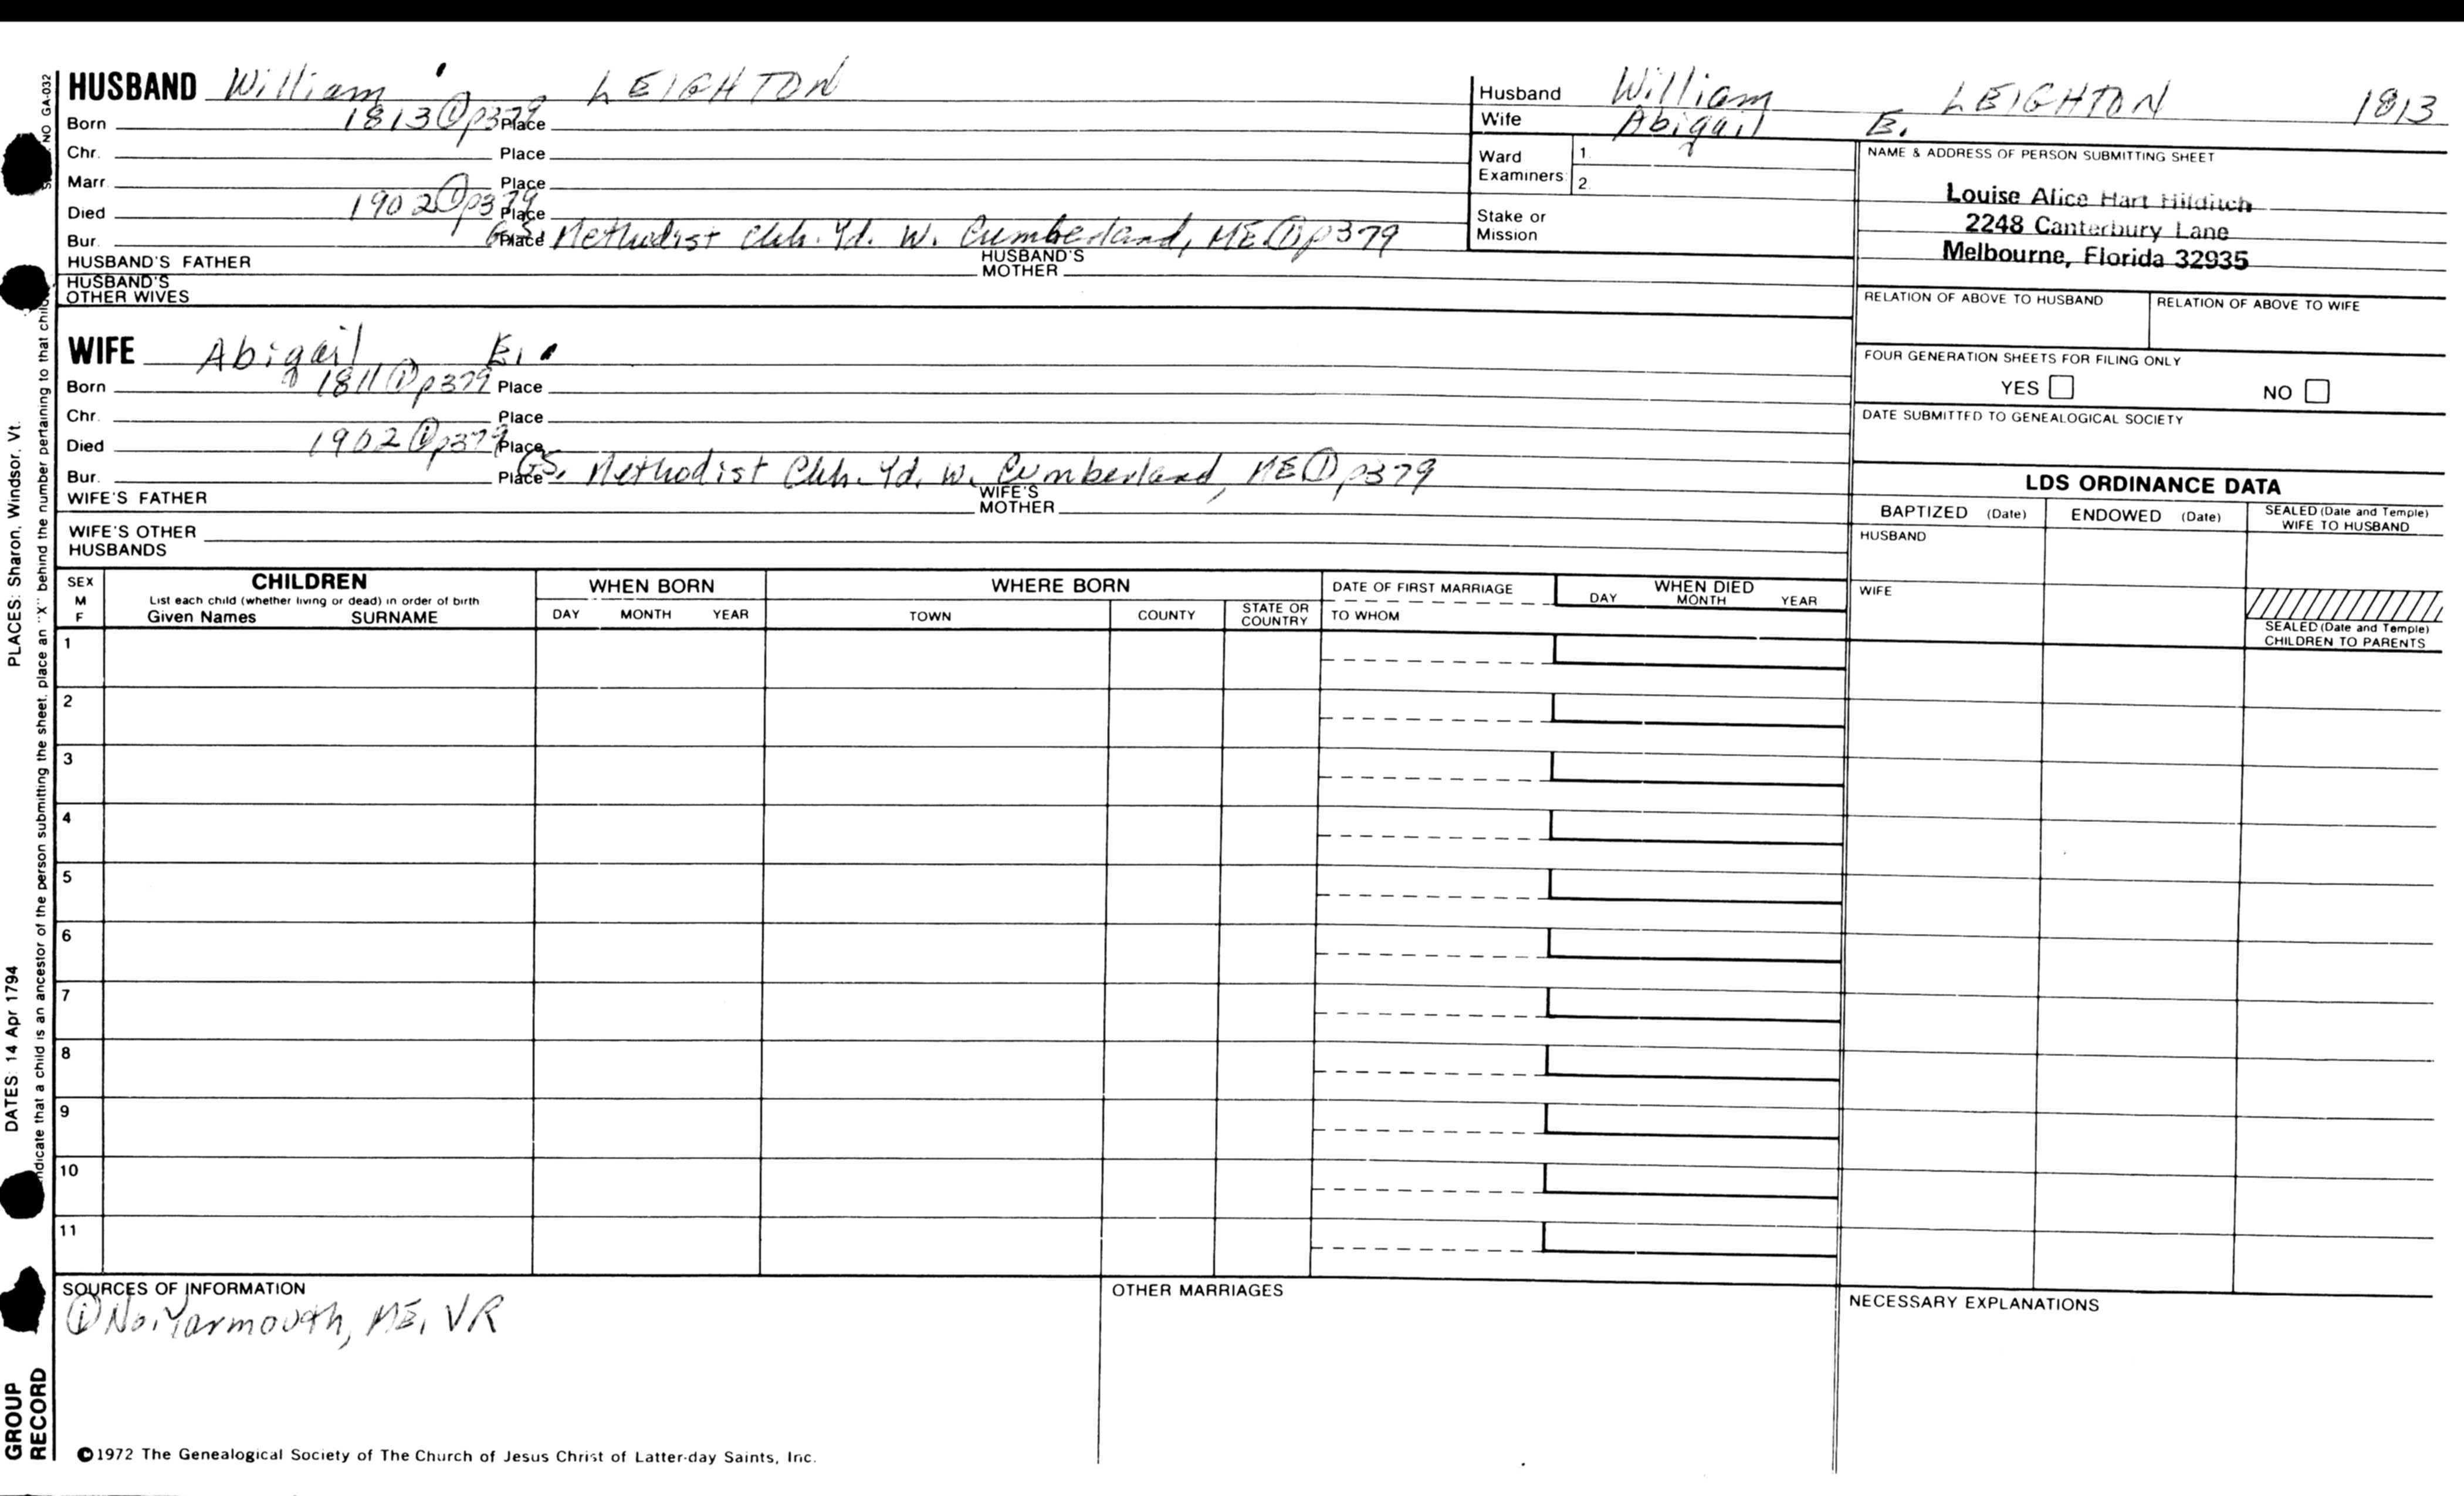 HUSBAND William LEIGHTON
Born 1813 ① p379 Place
Chr. Place
Marr. Place
Died 1902 ① p379 Place
Bur. Place G.S. Methodist Chh. Yd. W. Cumberland, ME ① p379
HUSBAND'S FATHER HUSBAND'S MOTHER
HUSBAND'S OTHER WIVES
WIFE Abigail E.
Born 1811 ① p379 Place
Chr. Place
Died 1902 ① p379 Place
Bur. Place GS. Methodist Chh. Yd. W. Cumberland, ME ① p379
WIFE'S FATHER WIFE'S MOTHER
WIFE'S OTHER HUSBANDS
Husband William LEIGHTON 1813
Wife Abigail E.
Ward Examiners 1. 2.
Stake or Mission
NAME & ADDRESS OF PERSON SUBMITTING SHEET
Louise Alice Hart Hilditch
2248 Canterbury Lane
Melbourne, Florida 32935
RELATION OF ABOVE TO HUSBAND RELATION OF ABOVE TO WIFE
FOUR GENERATION SHEETS FOR FILING ONLY
YES NO
DATE SUBMITTED TO GENEALOGICAL SOCIETY
LDS ORDINANCE DATA
BAPTIZED (Date) ENDOWED (Date) SEALED (Date and Temple) WIFE TO HUSBAND
HUSBAND
WIFE
SEALED (Date and Temple)
CHILDREN TO PARENTS
SEX M F CHILDREN WHEN BORN WHERE BORN DATE OF FIRST MARRIAGE WHEN DIED
List each child (whether living or dead) in order of birth
Given Names SURNAME DAY MONTH YEAR TOWN COUNTY STATE OR COUNTRY TO WHOM DAY MONTH YEAR
1
2
3
4
5
6
7
8
9
10
11
SOURCES OF INFORMATION OTHER MARRIAGES NECESSARY EXPLANATIONS
① No. Yarmouth, ME, VR
©1972 The Genealogical Society of The Church of Jesus Christ of Latter-day Saints, Inc.
NO GA-032
PLACES: Sharon, Windsor, Vt.
DATES: 14 Apr 1794
indicate that a child is an ancestor of the person submitting the sheet, place an "X" behind the number pertaining to that child
GROUP
RECORD